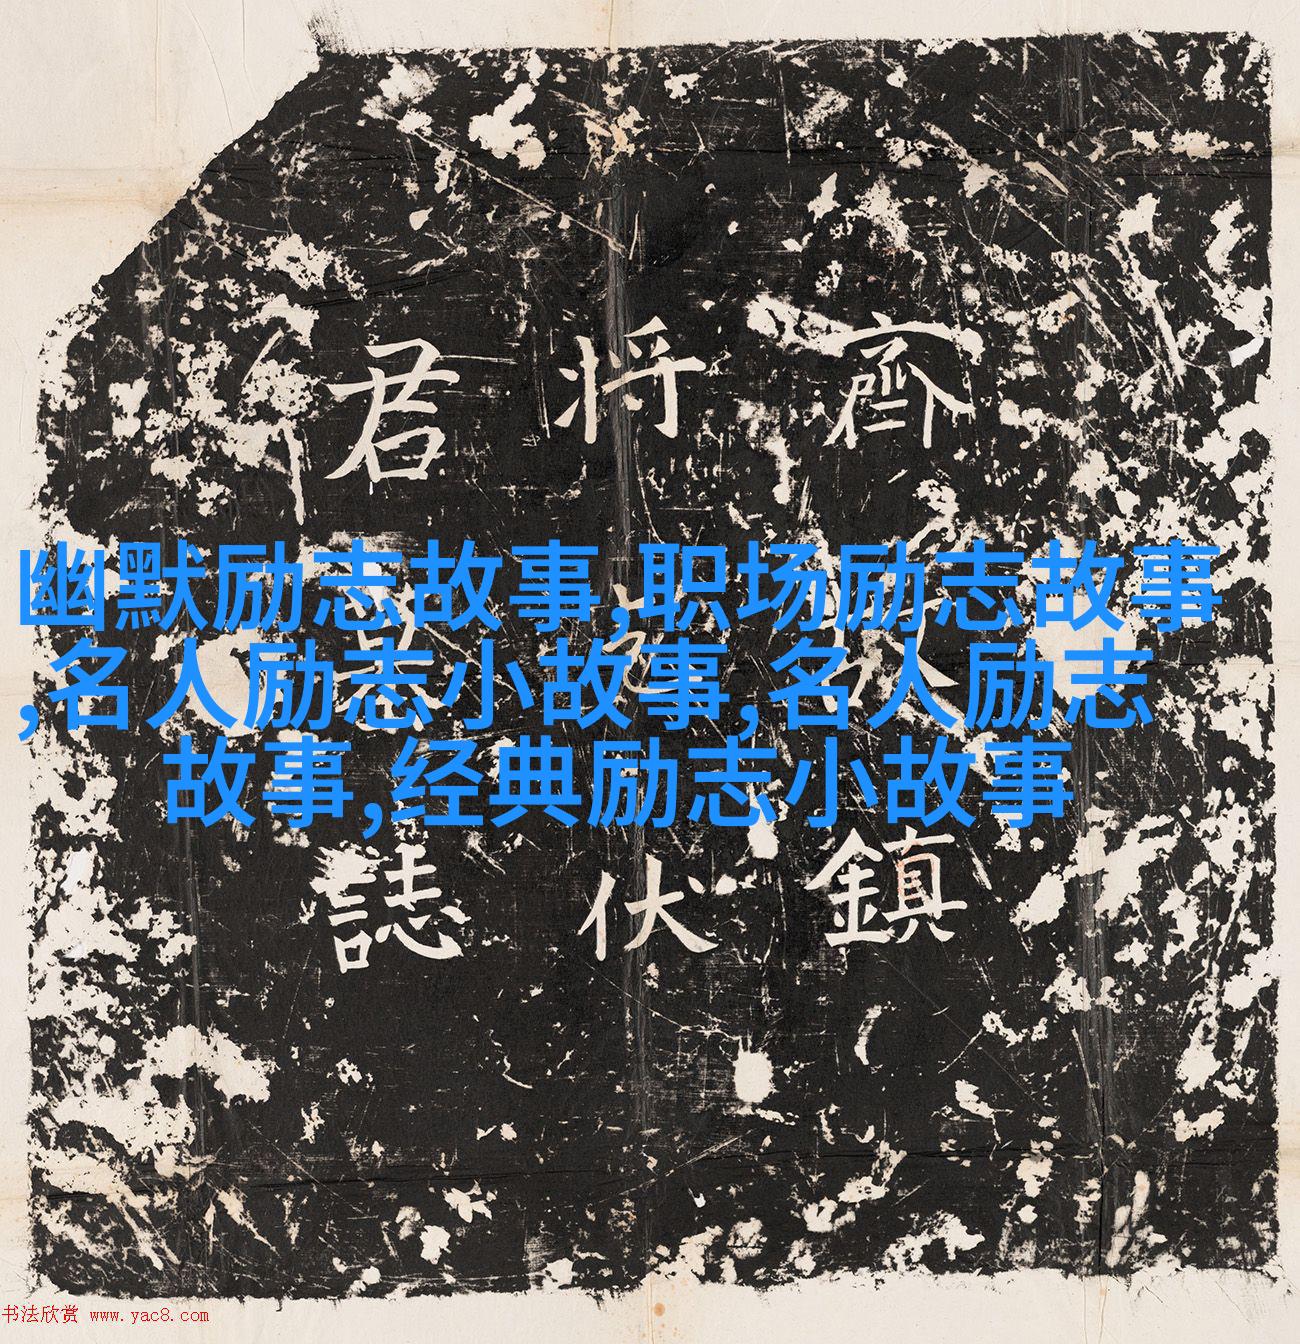 齊故鎮
将乞伏
君墓誌
幽默励志故事,职场励志故事
,名人励志小故事,名人励志
故事,经典励志小故事
书法欣赏 www.yac8.com